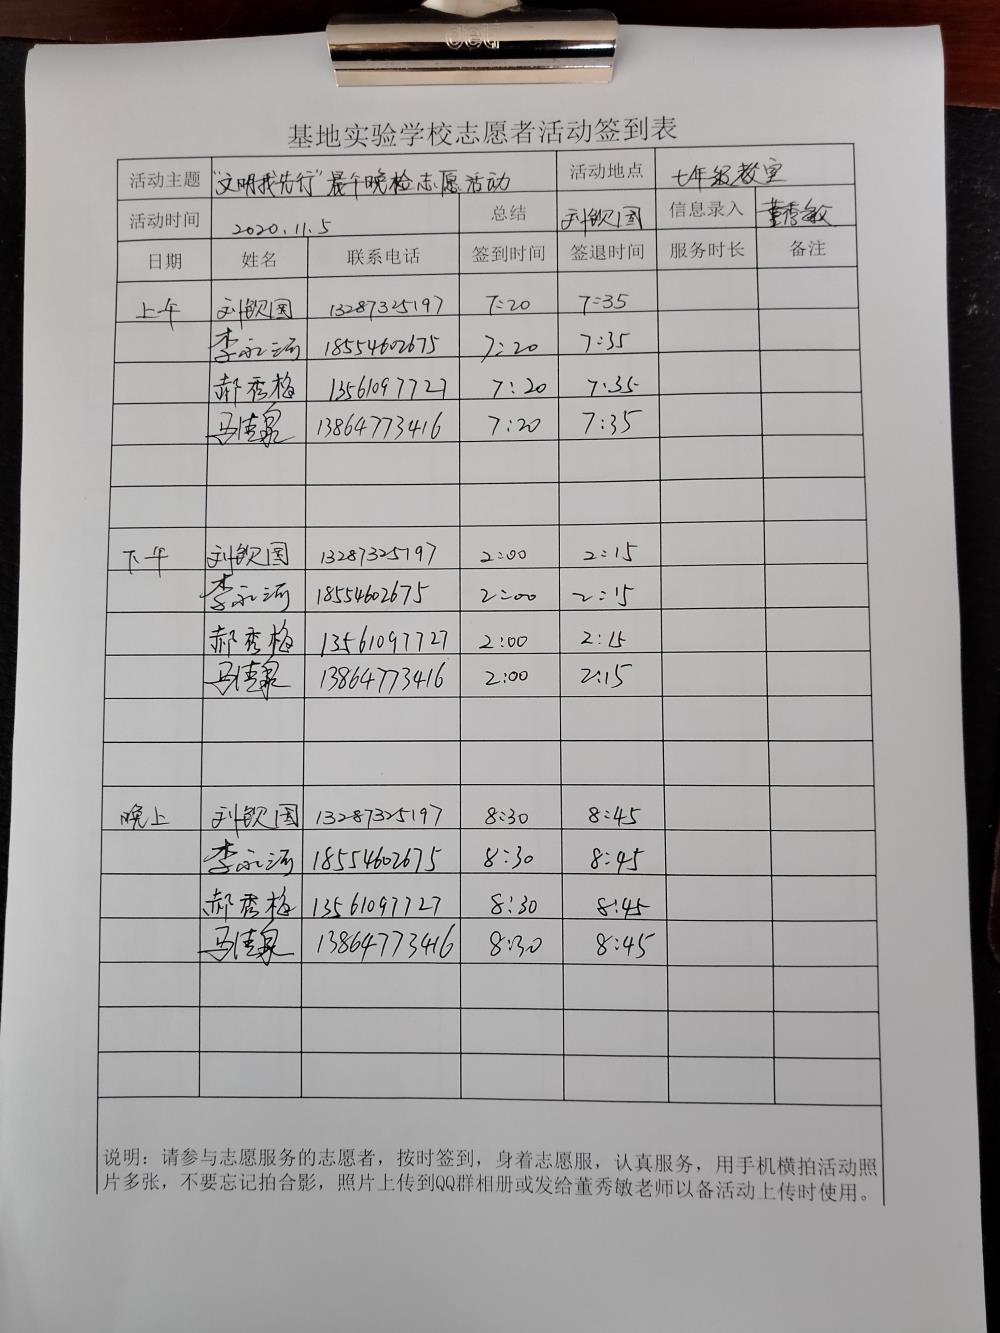 deli
基地实验学校志愿者活动签到表
活动主题 "文明我先行"晨午晚检志愿活动 活动地点 七年级教室
活动时间 2020.11.5 总结 刘钦国 信息录入 董秀敏
日期 姓名 联系电话 签到时间 签退时间 服务时长 备注
上午 刘钦国 13287325197 7:20 7:35
李永河 18554602675 7:20 7:35
郝秀梅 13561097727 7:20 7:35
马佳泉 13864773416 7:20 7:35
下午 刘钦国 13287325197 2:00 2:15
李永河 18554602675 2:00 2:15
郝秀梅 13561097727 2:00 2:15
马佳泉 13864773416 2:00 2:15
晚上 刘钦国 13287325197 8:30 8:45
李永河 18554602675 8:30 8:45
郝秀梅 13561097727 8:30 8:45
马佳泉 13864773416 8:30 8:45
说明：请参与志愿服务的志愿者，按时签到，身着志愿服，认真服务，用手机横拍活动照
片多张，不要忘记拍合影，照片上传到QQ群相册或发给董秀敏老师以备活动上传时使用。